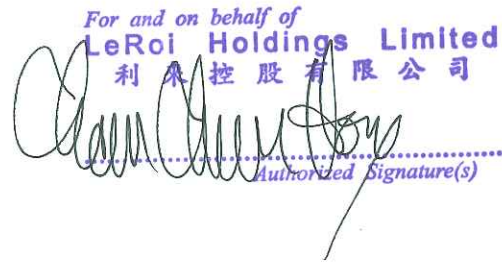 For and on behalf of
LeRoi Holdings Limited
利來控股有限公司
Authorized Signature(s)